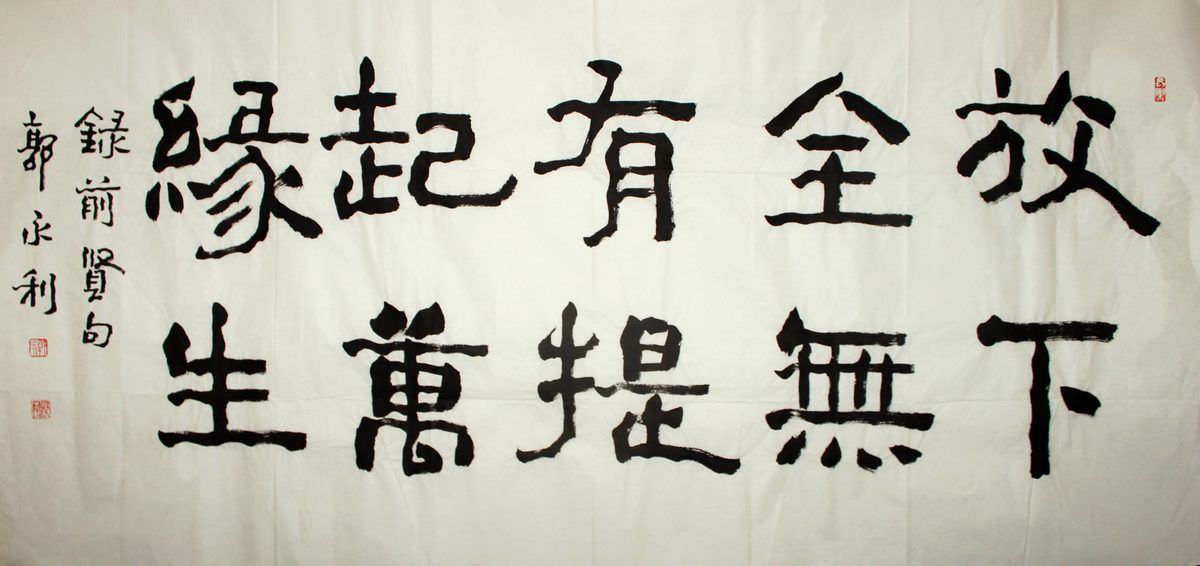 放下
全無
有提
起萬
緣生
録前賢句
郭永利